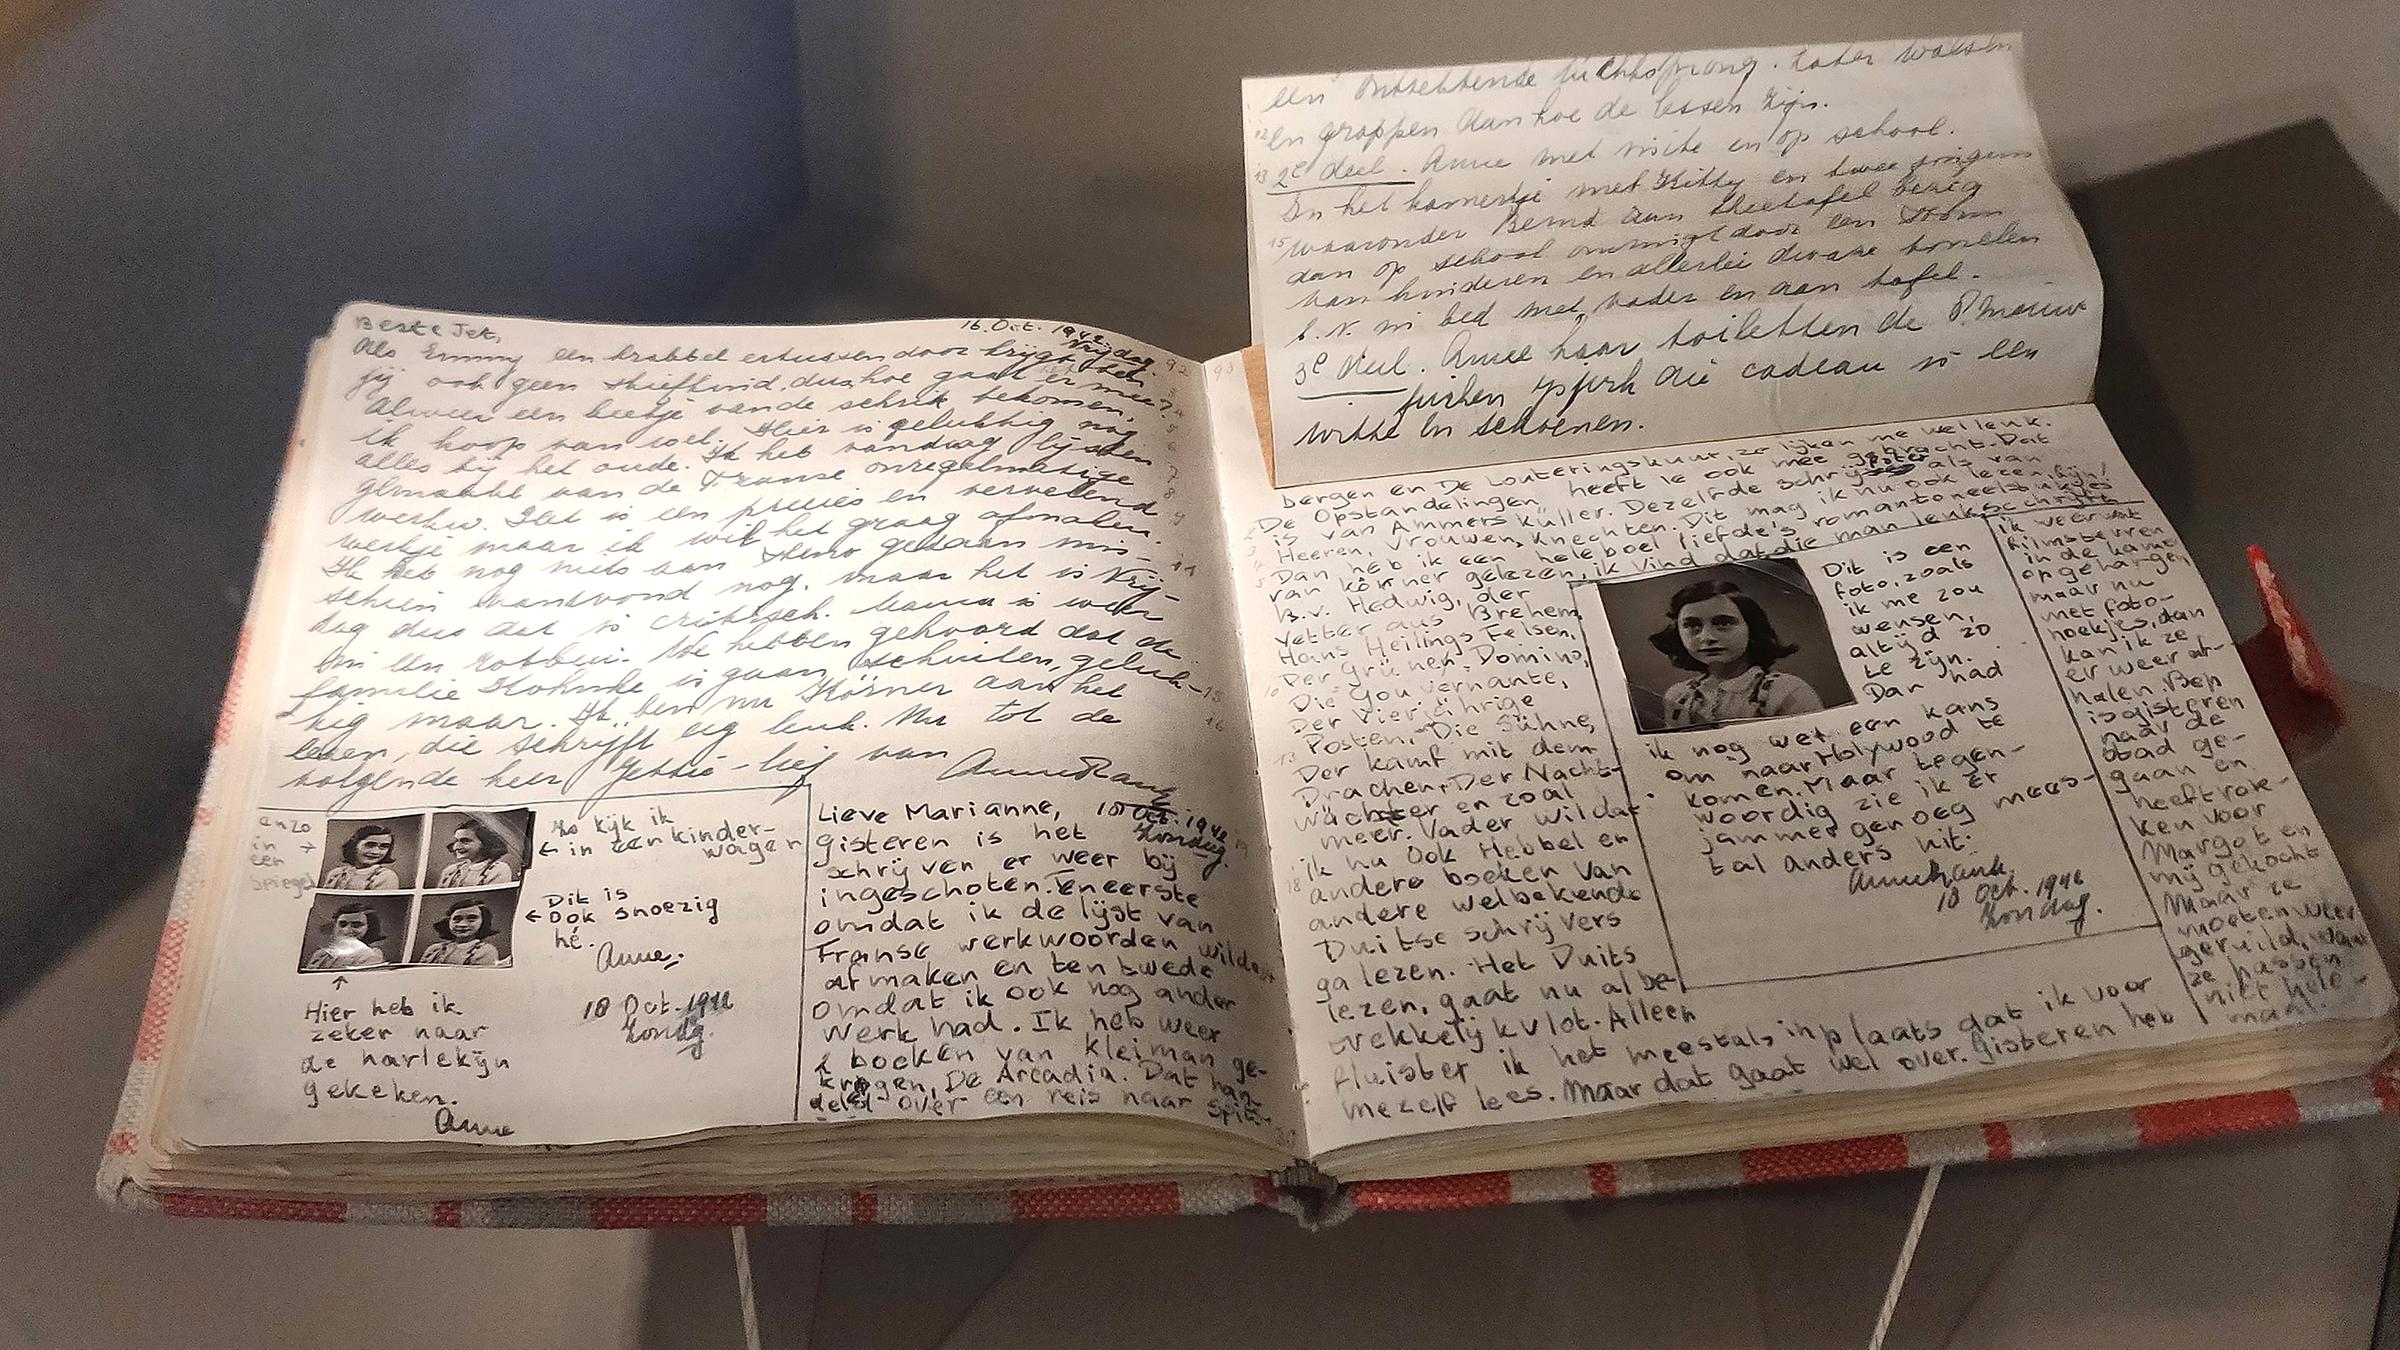 Beste Jet,
16. Oct. 1942
Vrijdag.
Als Emmy een krabbel ertussendoor krijgt, ben
jij ook geen stiefkind, dus hoe gaat er mee?
Alweer een beetje van de schrik bekomen,
ik hoop van wel. Hier is gelukkig nog
alles bij het oude. Ik heb vandaag lijsten
gemaakt van de Franse onregelmatige
werkw. Het is een precies en vervelend
werkje maar ik wil het graag afmaken.
Ik heb nog niets aan Steno gedaan mis-
schien vanavond nog, maar het is Vrij-
dag dus dat is critisch. Mama is weer
in een robbui. We hebben gehoord dat de
familie is gaan schuilen, geluk-
kig maar. Ik ben nu Körner aan het
lezen, die schrijft erg leuk. Nu tot de
volgende keer Jettie-lief van
Anne Frank
enzo
in →
een
spiegel
Zo kijk ik
← in een kinder-
wagen
Dit is
← Ook snoezig
hé.
Anne.
18 Oct. 1942
Zondag.
↑
Hier heb ik
zeker naar
de harlekijn
gekeken.
Anne
Lieve Marianne,
18 Oct. 1942
Zondag.
Gisteren is het
schrijven er weer bij
ingeschoten. Teneerste
omdat ik de lijst van
Franse werkwoorden wilde
afmaken en ten tweede
omdat ik ook nog ander
werk had. Ik heb weer
2 boeken van kleiman ge-
kregen, De Arcadia. Dat han-
delt over een reis naar Spits-
92
93
een ontzettende luchtsprong. Later walsen
en grappen aan hoe de lessen zijn.
2e deel. Anne met visite en op school.
In het kamertje met Kitty en twee jongens
waaronder Bernd aan theetafel bezig
dan op school omringd door een drom
van kinderen en allerlei dwaze tonelen
b.v. in bed met vader en aan tafel.
3e deel. Anne haar toiletten de
die cadeau is een
witte en schoenen.
bergen en De Louteringskuur, ze lijken me wel leuk.
De Opstandelingen heeft ze ook mee gebracht. Dat
is van Ammers Küller. Dezelfde schrijfster als van
Heeren, Vrouwen, Knechten. Dit mag ik nu ook lezen, fijn!
Dan heb ik een heleboel liefde's romantoneelstukjes
van körner gelezen, ik vind dat die man leuk schrijft.
B.v. Hedwig, der
Vetter aus Brehem,
Hans Heilings Felsen,
Der Grünen Domino,
Die Gouvernante,
Der Vier jährige
Posten, Die Sühne,
Der kamf mit dem
Drachen, Der Nacht-
wächter en zoal
meer. Vader wil dat
ik nu ook Hebbel en
andere boeken van
andere welbekende
Duitse schrijvers
ga lezen. Het Duits
lezen, gaat nu al be-
trekkelijk vlot. Alleen
fluister ik het meestals inplaats dat ik voor
mezelf lees. Maar dat gaat wel over. Gisteren heb
Dit is een
foto, zoals
ik me zou
wensen,
altijd zo
te zijn.
Dan had
ik nog wel een kans
om naar Holywood te
komen. Maar tegen-
woordig zie ik er
jammer genoeg mees-
tal anders uit.
Anne Frank
18 Oct. 1942
Zondag.
ik weer
filmsterren
in de kamer
opgehangen
maar nu
met foto-
hoekjes, dan
kan ik ze
er weer af-
halen. Bep
is gisteren
naar de
stad ge-
gaan en
heeft rok-
ken voor
Margot en
mij gekocht
Maar ze
moeten weer
geruild, want
ze passen
niet hele-
maal.